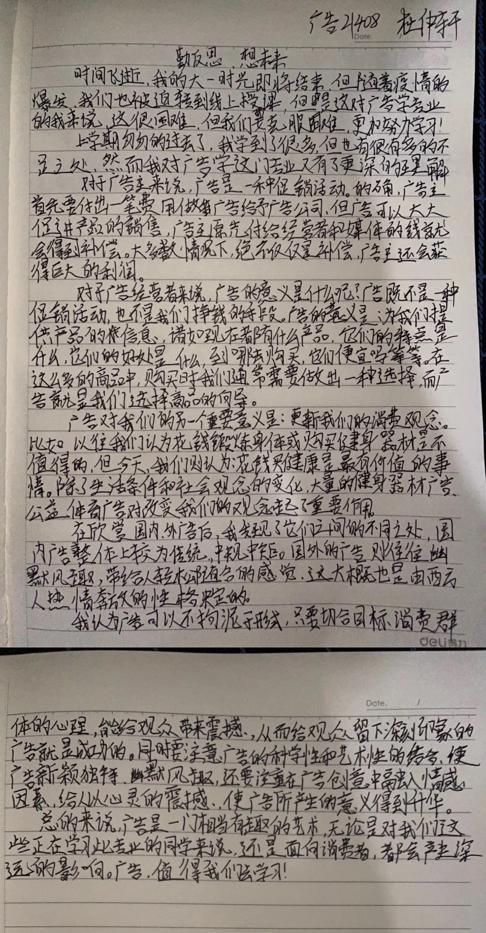 广告21408 杜仲轩
Date.
勤反思 想未来
时间飞逝,我的大一时光即将结束,但随着疫情的
爆发,我们也被迫转到线上授课,但是这对广告学专业
的我来说,这很困难,但我们要克服困难,更加努力学习!
上学期匆匆的过去了,我学到了很多,但也有很多的不
足之处,然而我对广告学这门专业又有了更深的理解
对于广告主来说,广告是一种促销活动,的确,广告主
首先要付出一笔费用做为广告给予广告公司,但广告可以大大
促进产品的销售,广告主原先付给经营者和媒体的钱就
会得到补偿。大多数情况下,绝不仅仅是补偿,广告主还会获
得巨大的利润。
对于广告经营者来说,广告的意义是什么呢?广告既不是一种
促销活动,也不是我们挣钱的手段,广告的意义是:为我们提
供产品的信息,诸如现在都有什么产品,它们的特点是
什么,它们的好处是什么,到哪去购买,他们便宜吗等等。在
这么多的商品中,购买时我们通常需要做出一种选择,而广
告就是我们选择商品的向导。
广告对我们的另一个重要意义是:更新我们的消费观念。
比如以往我们认为花钱锻炼身体或购买健身器材是不
值得的,但今天,我们则认为:花钱买健康是最有价值的事
情。除了生活条件和社会观念的变化,大量的健身器材广告、
公益体育广告对改变我们的观念起了重要作用
在欣赏国内外广告后,我发现了它们之间的不同之处,国
内广告整体上较为传统,中规中矩。国外的广告则往往幽
默风趣,带给人轻松随合的感觉,这大概也是由西方
人热情奔放的性格决定的。
我认为广告可以不拘泥于形式,只要切合目标消费群
deli
Date. /
体的心理,能给观众带来震撼,从而给观众留下深刻印象的
广告就是成功的。同时要注意广告的科学性和艺术性的结合,使
广告新颖独特、幽默风趣,还要注重在广告创意中融入情感
因素,给人以心灵的震撼,使广告所产生的意义得到升华。
总的来说,广告是一门相当有趣的艺术,无论是对我们这
些正在学习此专业的同学来说,还是面向消费者,都会产生深
远的影响。广告,值得我们去学习!